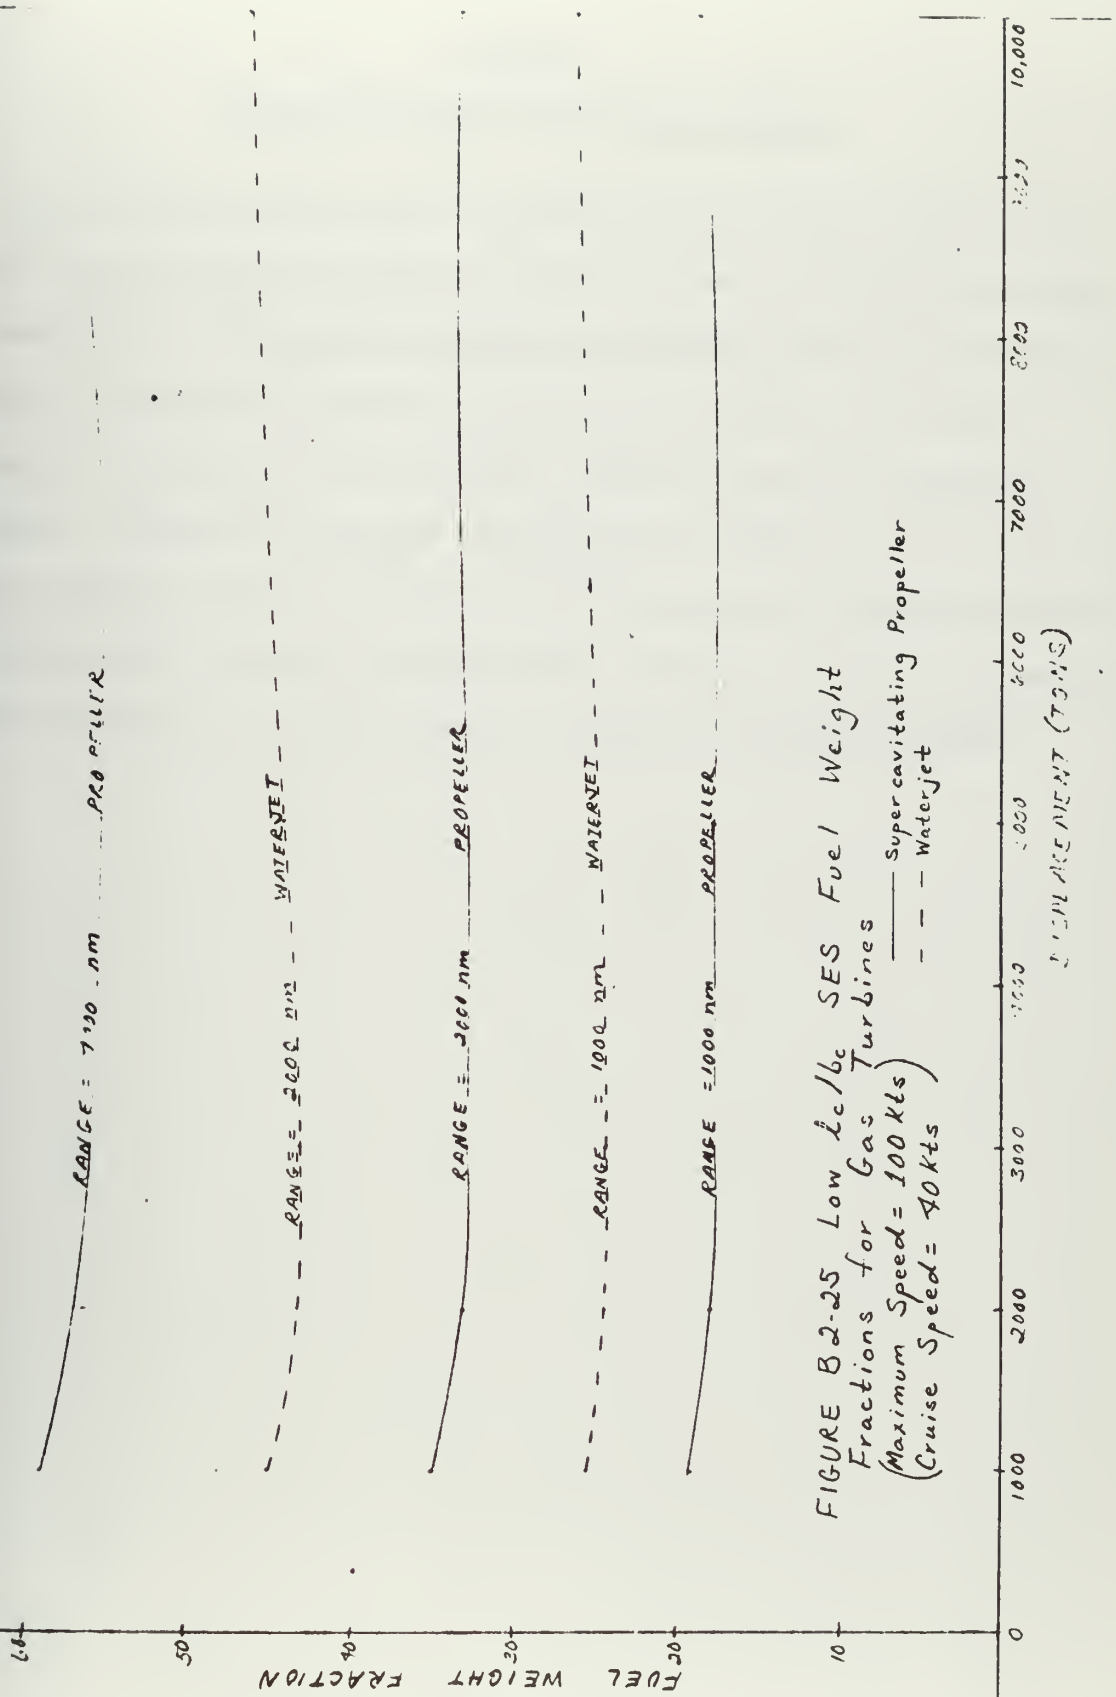 60
50
40
30
20
10
FUEL WEIGHT FRACTION
RANGE = nm PROPELLER
RANGE = 2000 nm WATERJET
RANGE = 2000 nm PROPELLER
RANGE = 1000 nm WATERJET
RANGE = 1000 nm PROPELLER
FIGURE B2-25 Low lc/bc SES Fuel Weight
Fractions for Gas Turbines
(Maximum Speed = 100 kts)
(Cruise Speed = 40 kts)
Supercavitating Propeller
Waterjet
0 1000 2000 3000 7000 10,000
DISPLACEMENT (TONS)